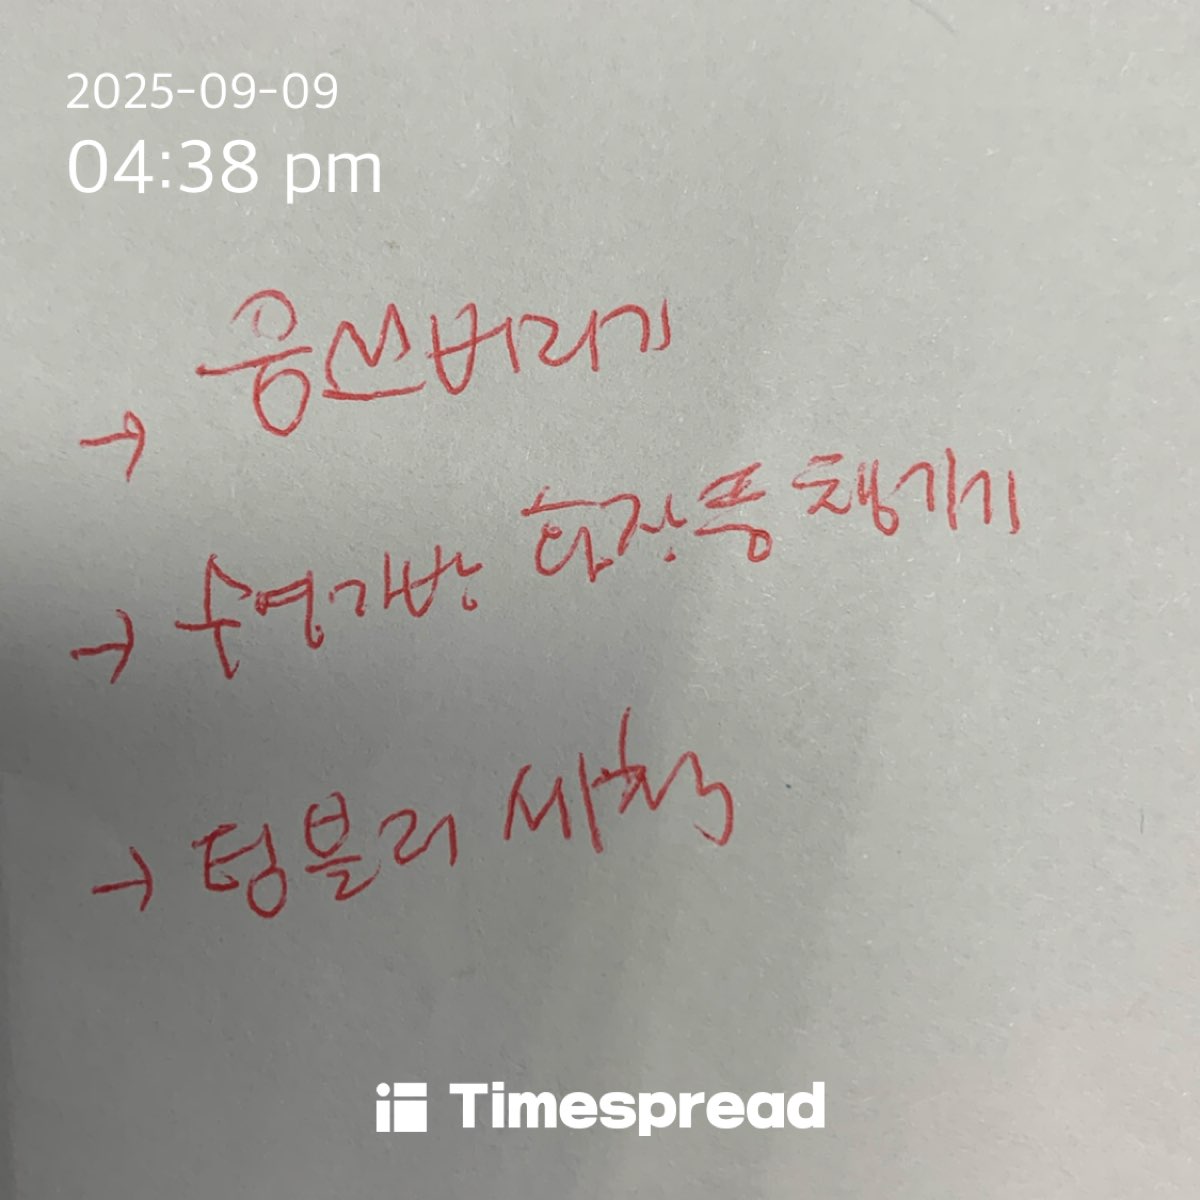 2025-09-09
04:38 pm
음쓰버리기
→ 수영가방 화장품 챙기기
→ 텀블러 세척
Timespread